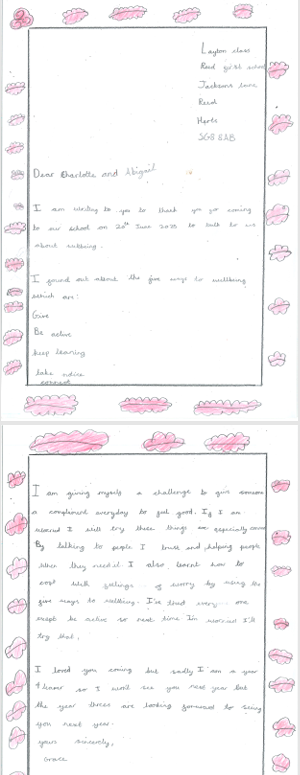 Layton class
Reed first school
Jacksons lane
Reed
Herts
SG8 8AB
Dear Charlotte and Abigail
I am writing to you to thank you for coming
to our school on 20th June 2018 to talk to us
about wellbeing.
I found out about the five ways to wellbeing
which are:
Give
Be active
keep learning
take notice
connect
I am giving myself a challenge to give someone
a complement everyday to feel good. If I am
worried I will try these things especially connect
By talking to people I trust and helping people
when they need it. I also learnt how to
cope with feelings of worry by using the
five ways to wellbeing. I've tried every one
exept be active so next time Im worried I'll
try that.
I loved you coming but sadly I am a year
4 leaver so I won't see you next year but
the year threes are looking forward to seeing
you next year.
yours sincerely,
Grace